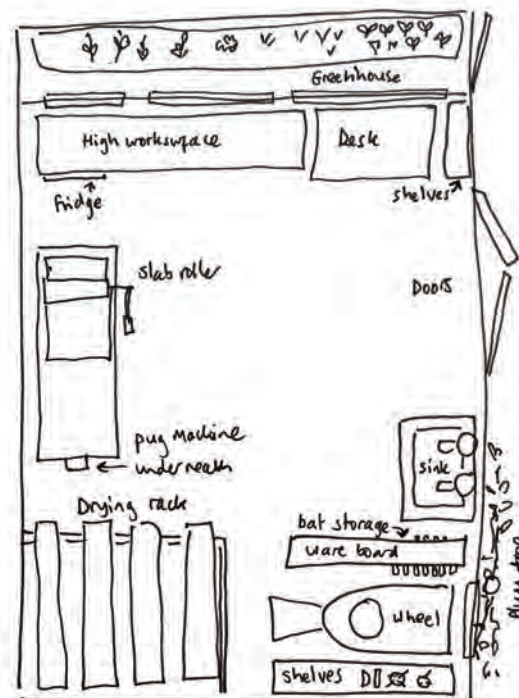 Greenhouse
High worksurface
Desk
fridge
shelves
slab roller
Doors
pug machine
underneath
sink
Drying rack
bat storage
ware board
wheel
shelves